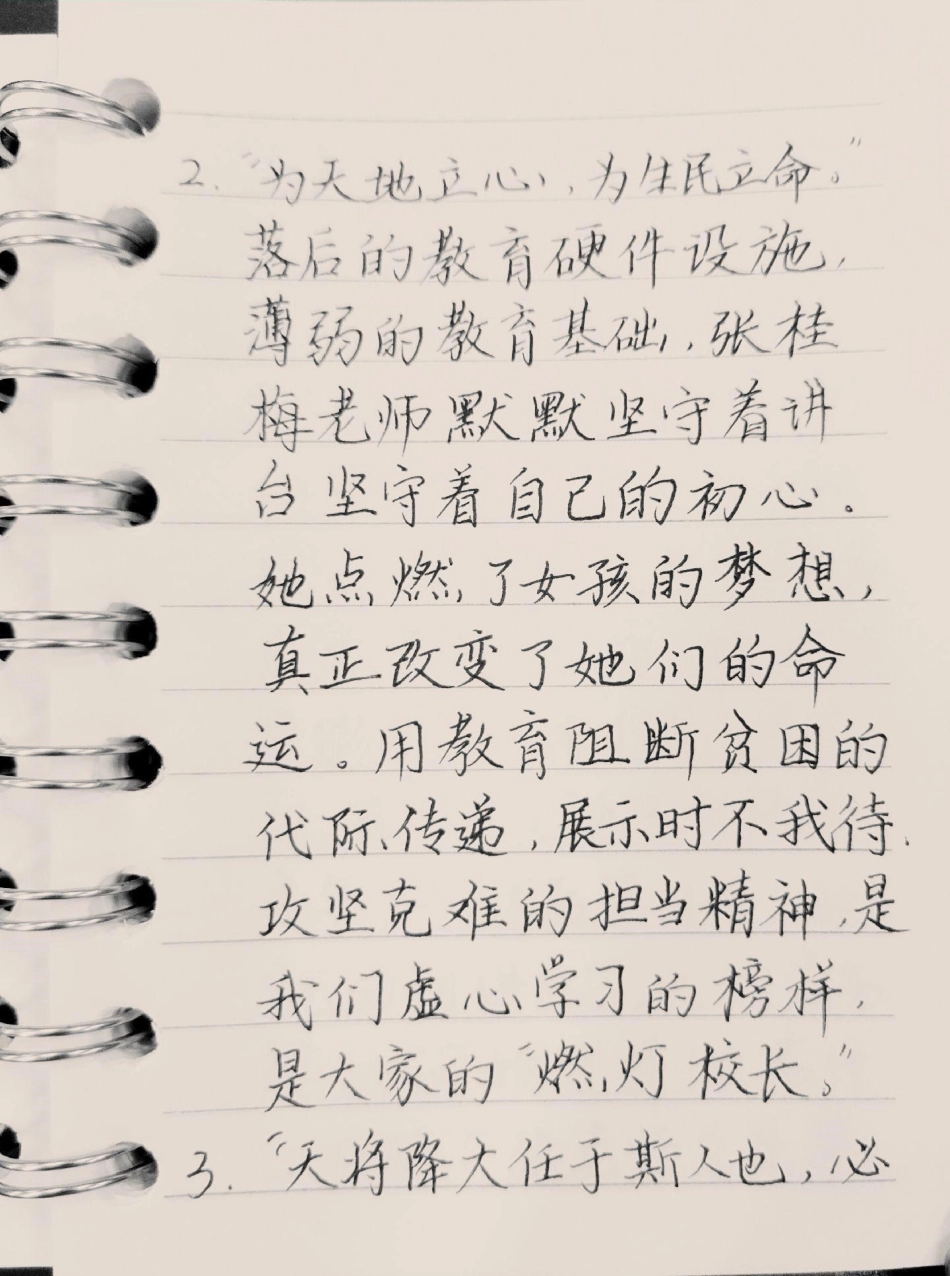 2.“为天地立心，为生民立命。”
落后的教育硬件设施，
薄弱的教育基础，张桂
梅老师默默坚守着讲
台坚守着自己的初心。
她点燃了女孩的梦想，
真正改变了她们的命
运。用教育阻断贫困的
代际传递，展示时不我待、
攻坚克难的担当精神，是
我们虚心学习的榜样，
是大家的“燃灯校长。”
3.“天将降大任于斯人也，必